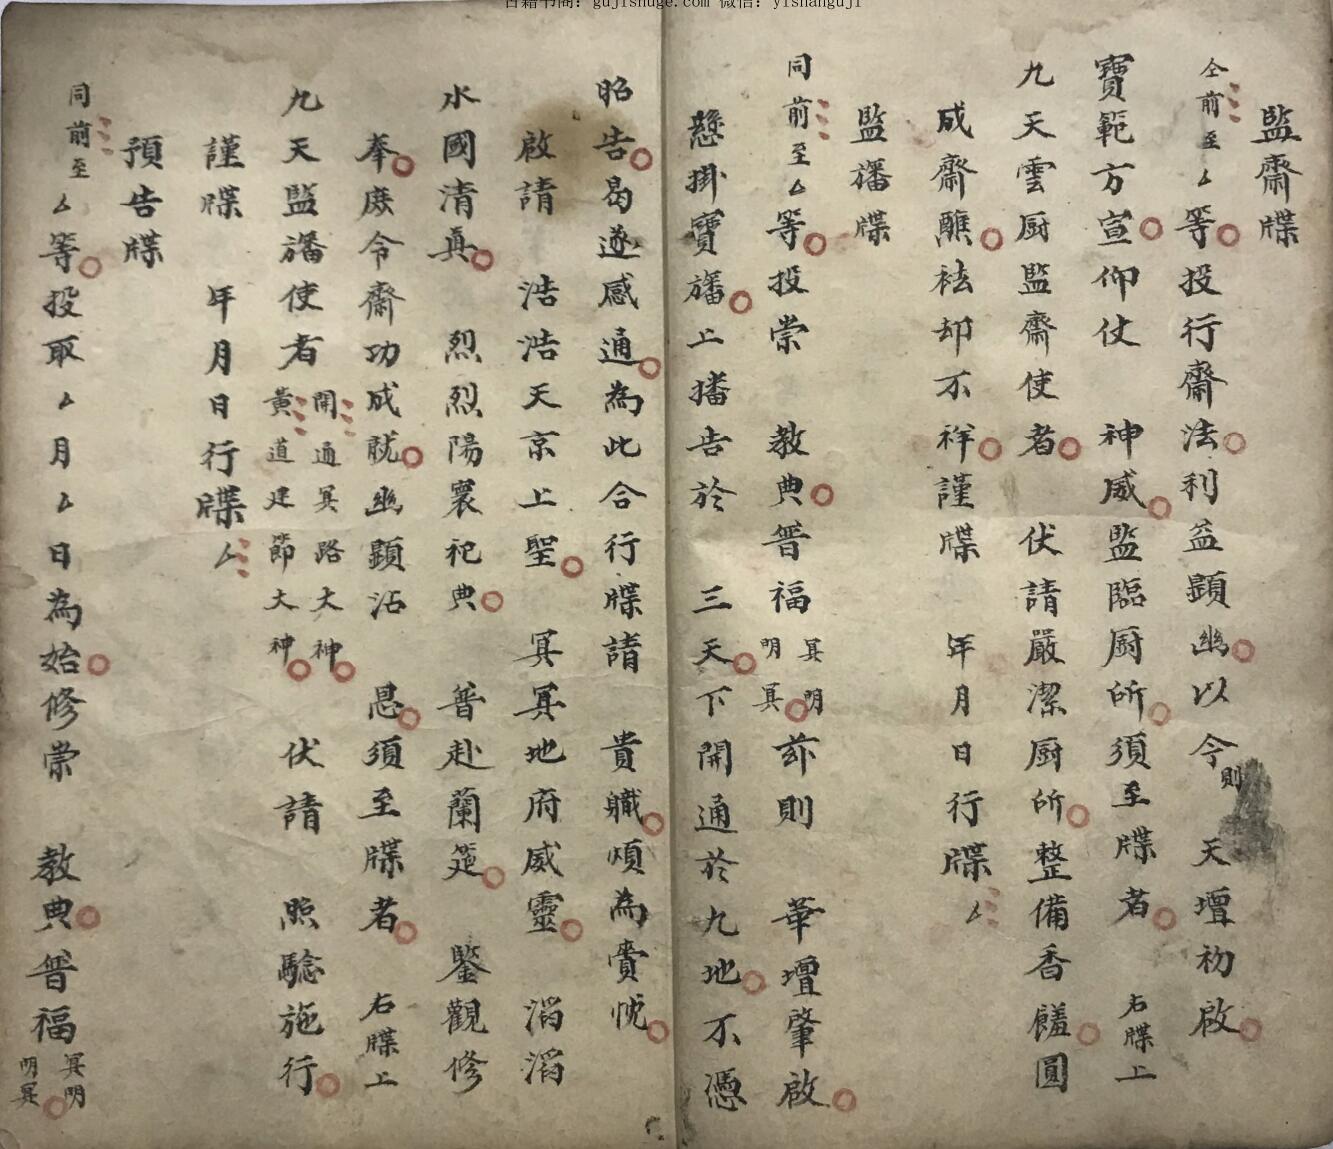 古籍书阁：gujishuge.com 微信：yishanguji
監齋牒
仝前至厶等投行齋法利益顯幽以令則 天壇初啟
寶範方宣仰仗 神威監臨厨所須至牒者 右牒上
九天雲厨監齋使者 伏請嚴潔厨所整備香饈圓
成齋醮祛却不祥謹牒 年月日行牒厶
監旛牒
同前至厶等投崇 教典普福冥明明冥茲則 華壇肇啟
懸掛寶旛上播告於 三天下開通於九地不憑
昭告曷遂感通為此合行牒請 貴職煩為賫恱
啟請 浩浩天京上聖 冥冥地府威靈 滔滔
水國清真 烈烈陽寰祀典 普赴蘭筵 鑒觀修
奉庶令齋功成就幽顯沾 恩須至牒者 右牒上
九天監旛使者開通冥路大神黃道建節大神 伏請 照驗施行
謹牒 年月日行牒厶
預告牒
同前至厶等投取厶月厶日為始修崇 教典普福冥明明冥